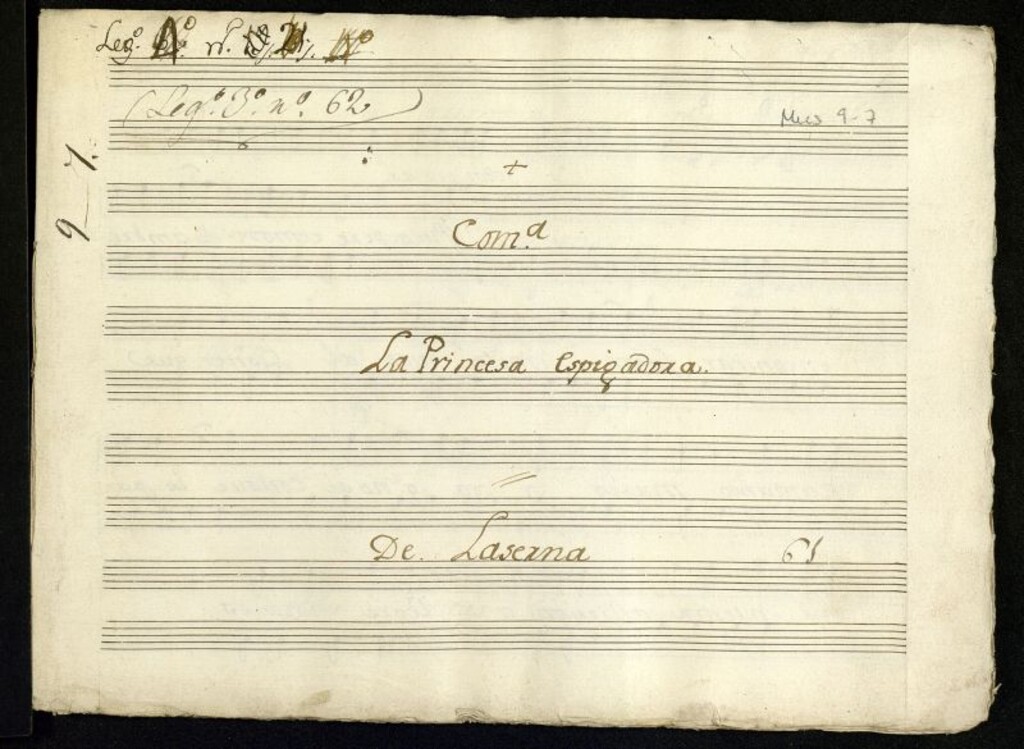 Leg.º nº.
(Leg.º 3.º n.º 62)
Mus 9-7
9-7.
+
Com.ª
La Princesa Espigadora.
De Laserna
61